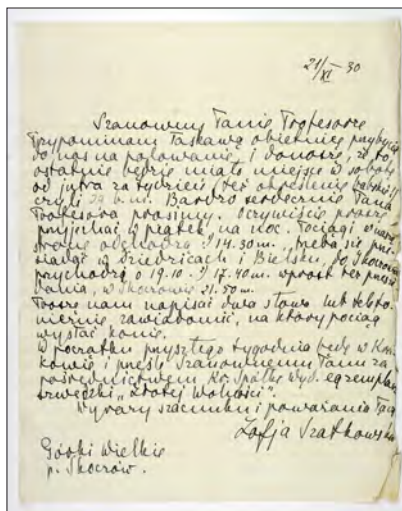 21/XI – 30
Szanowny Panie Profesorze
Przypominam łaskawą obietnicę przybycia
do nas na polowanie, i donoszę, że to
ostatnie będzie miało miejsce w sobotę
od jutra za tydzień (też określenie babskie!)
czyli 29 b.m. Bardzo serdecznie Pana
Profesora prosimy. Oczywiście proszę
przyjechać w piątek, na noc. Pociągi w naszą
stronę odchodzą o 14.30 m., trzeba się prze-
siadać w Dziedzicach i Bielsku, do Skoczowa
przychodzą o 19.10. i 17.40 m. wprost bez przesia-
dania, w Skoczowie 21.50 m.
Proszę nam napisać dwa słowa lub telefo-
nicznie zawiadomić, na który pociąg
wysłać konie.
W początku przyszłego tygodnia będę w Kra-
kowie i prześlę Szanownemu Panu za
pośrednictwem Kr. Spółki Wyd. egzemplarz
"Złotej Wolności".
Wyrazy szacunku i poważania łączę
Zofja Szatkowska
Górki Wielkie
p. Skoczów.